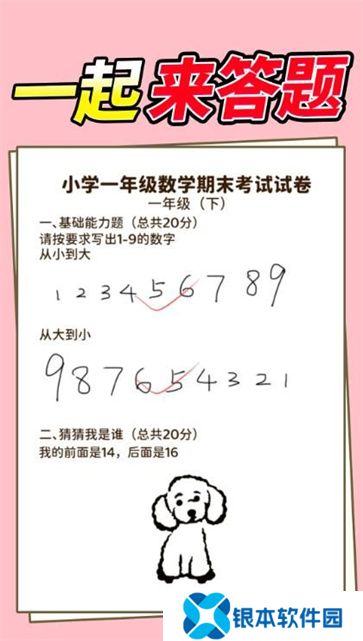 一起来答题
小学一年级数学期末考试试卷
一年级（下）
一、基础能力题（总共20分）
请按要求写出1-9的数字
从小到大
1 2 3 4 5 6 7 8 9
从大到小
9 8 7 6 5 4 3 2 1
二、猜猜我是谁（总共20分）
我的前面是14，后面是16
银本软件园